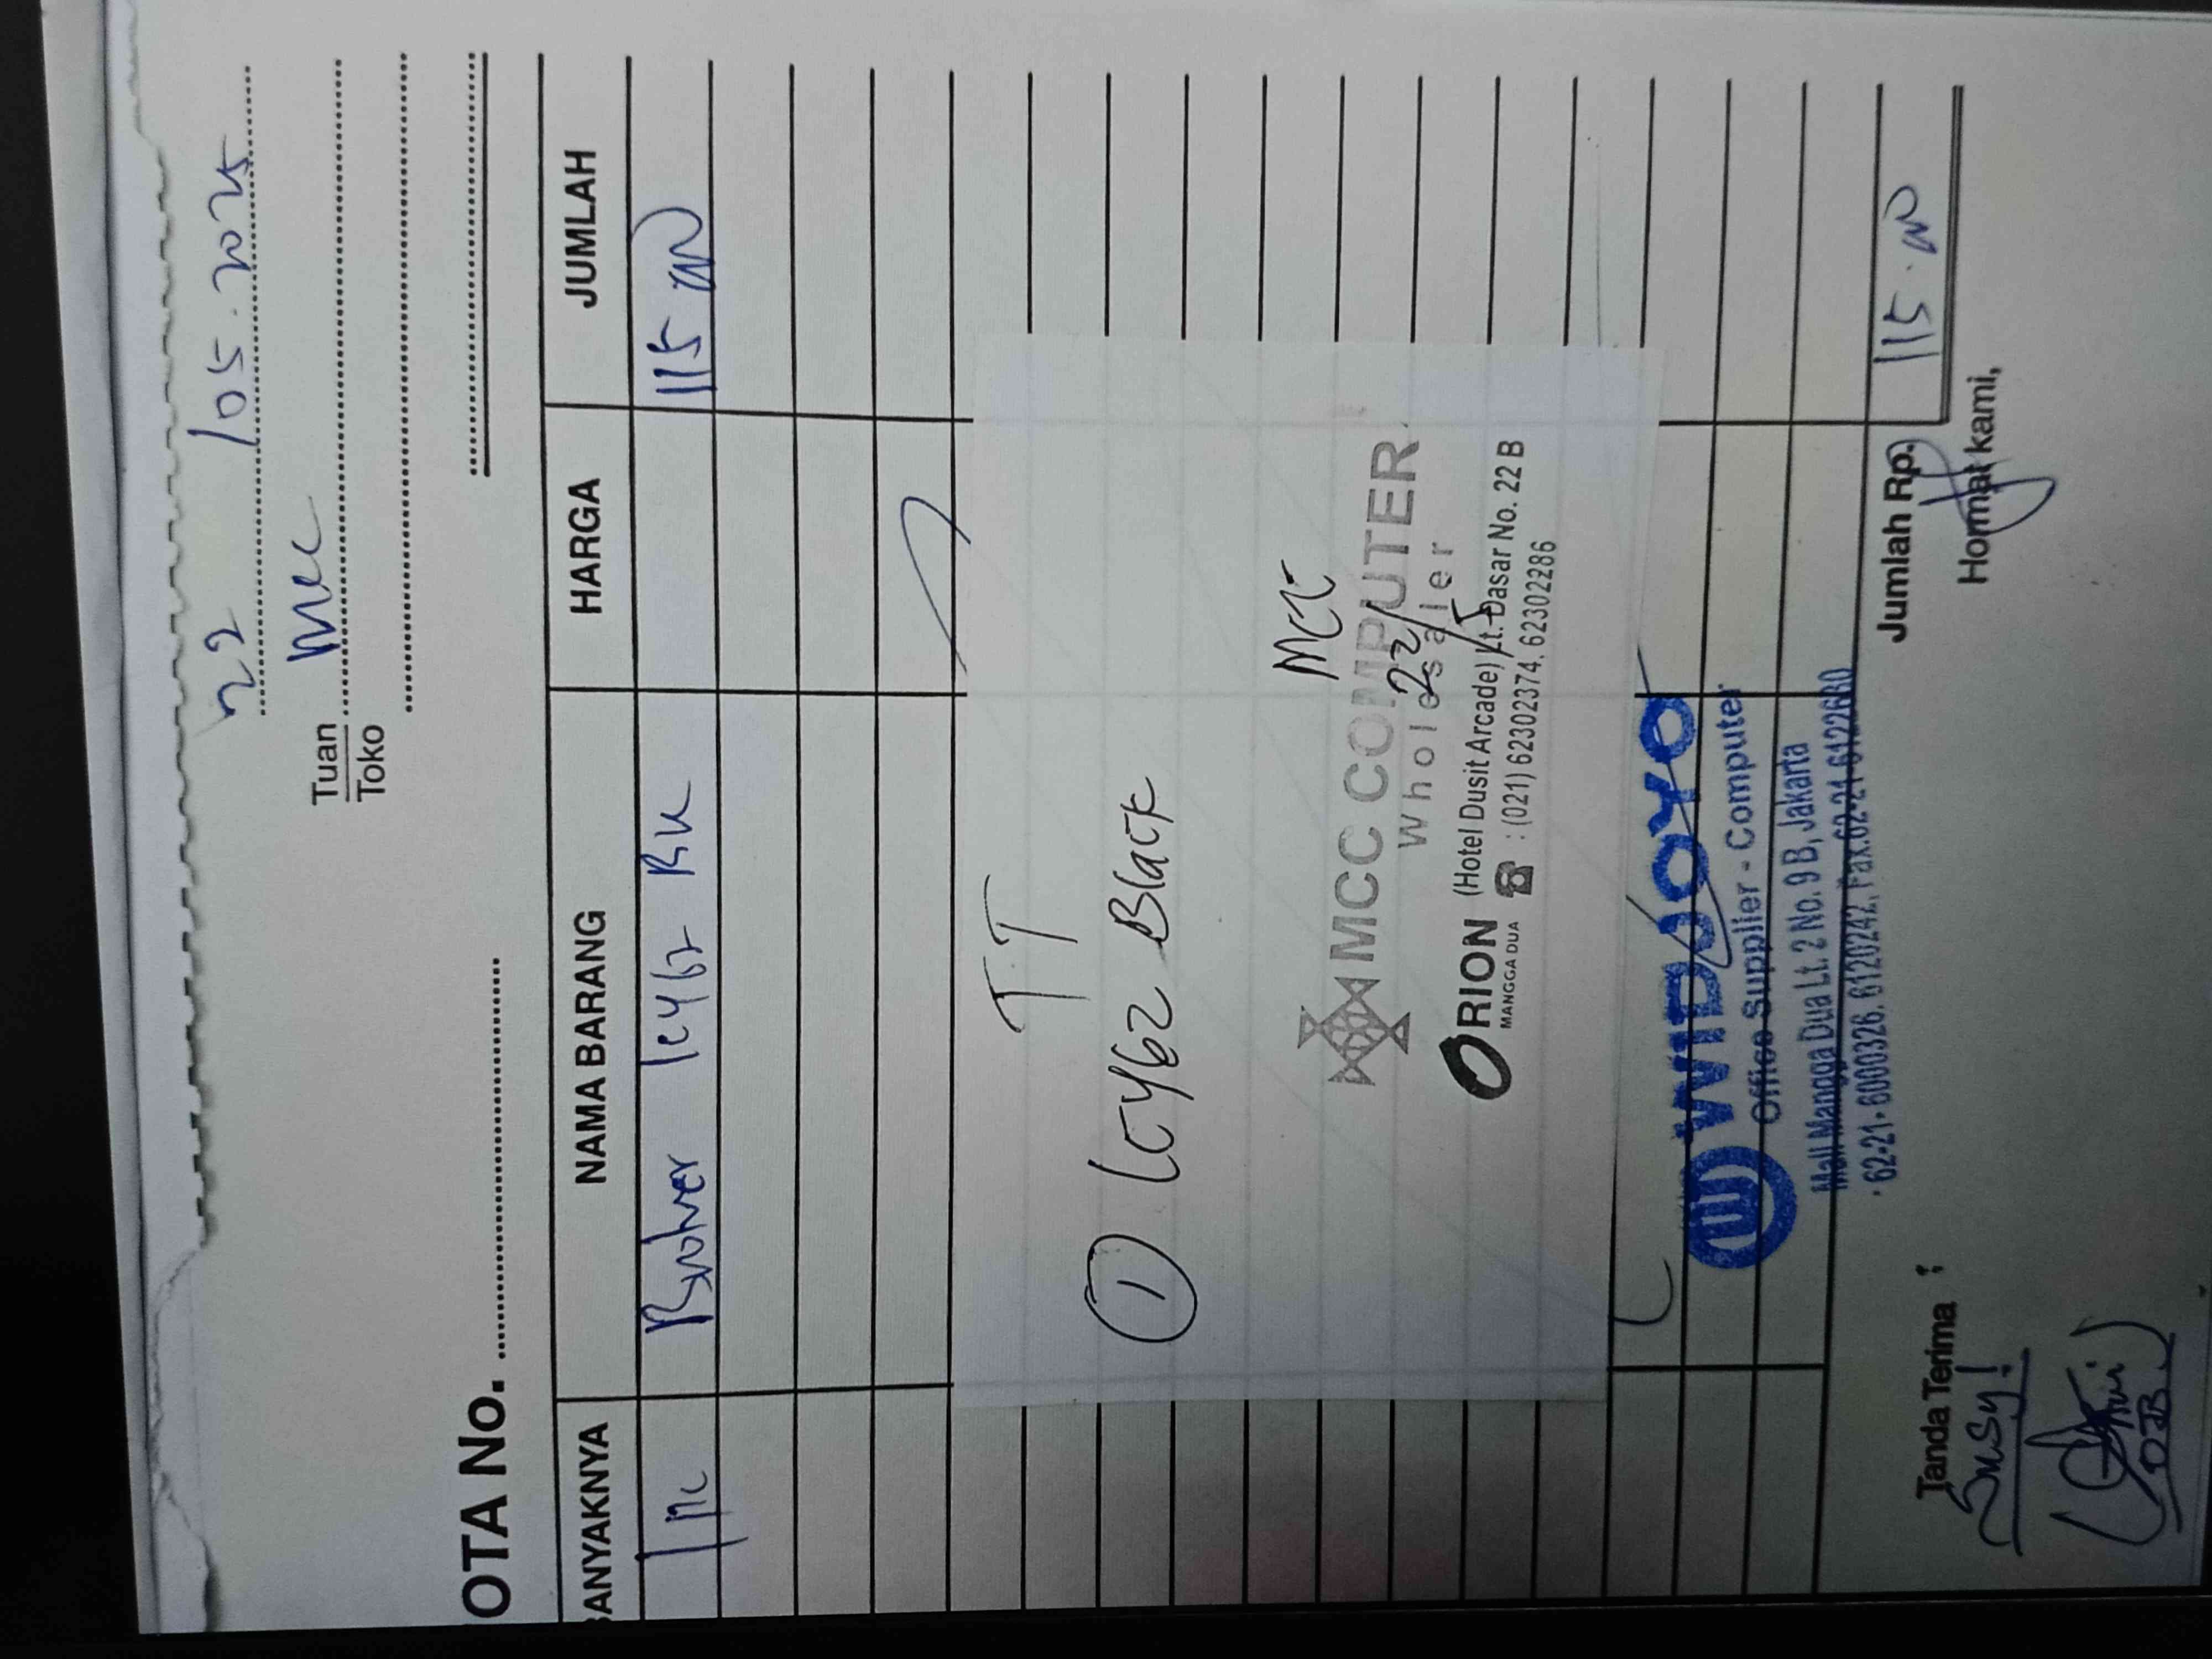 22 /05.2025
Tuan mcc
Toko
OTA No.
BANYAKNYA NAMA BARANG HARGA JUMLAH
1 pc Brother lc462 BK 115
TT
① LC462 Black
MCC
22/5
MCC COMPUTER
Wholesaler
ORION (Hotel Dusit Arcade) Lt. Dasar No. 22 B
MANGGA DUA ☎ : (021) 62302374, 62302286
WIDJOYO
Office Supplier - Computer
Mall Mangga Dua Lt. 2 No. 9 B, Jakarta
62-21-6000326, 6120242, Fax.62-21-6122680
Jumlah Rp. 115
Tanda Terima Hormat kami,
Susy!